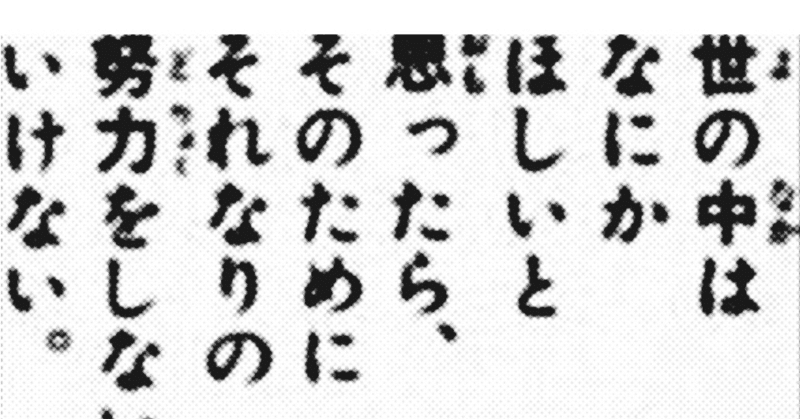 世の中は
なにか
ほしいと
思ったら、
そのために
それなりの
努力をしない
いけない。